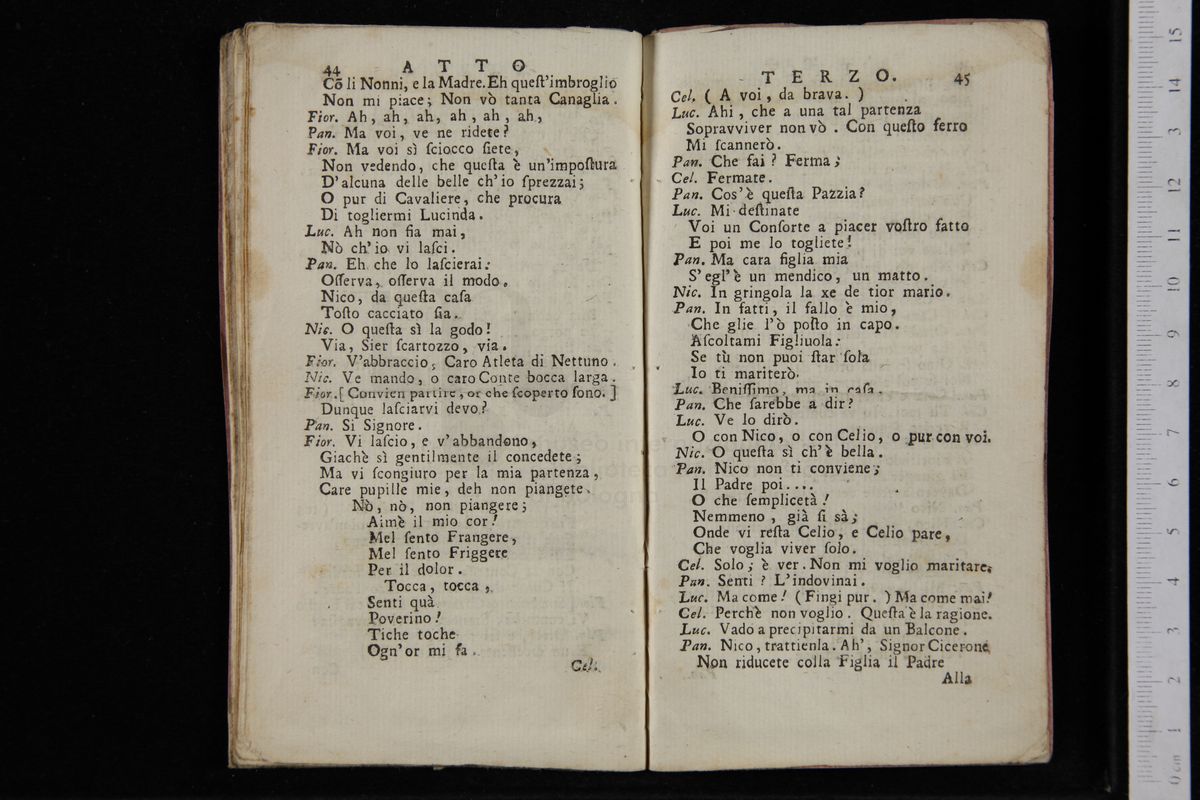 44 A T T O
Cō li Nonni, e la Madre. Eh queſt'imbroglio
Non mi piace; Non vò tanta Canaglia.
Fior. Ah, ah, ah, ah, ah, ah,
Pan. Ma voi, ve ne ridete?
Fior. Ma voi sì ſciocco ſiete,
Non vedendo, che queſta è un'impoſtura
D'alcuna delle belle ch'io ſprezzai;
O pur di Cavaliere, che procura
Di togliermi Lucinda.
Luc. Ah non ſia mai,
Nò ch'io vi laſci.
Pan. Eh che lo laſcierai:
Oſſerva, oſſerva il modo.
Nico, da queſta caſa
Toſto cacciato ſia.
Nic. O queſta sì la godo!
Via, Sier ſcartozzo, via.
Fior. V'abbraccio, Caro Atleta di Nettuno.
Nic. Ve mando, o caro Conte bocca larga.
Fior. [ Convien partire, or che ſcoperto ſono. ]
Dunque laſciarvi devo?
Pan. Si Signore.
Fior. Vi laſcio, e v'abbandono,
Giachè sì gentilmente il concedete;
Ma vi ſcongiuro per la mia partenza,
Care pupille mie, deh non piangete.
Nò, nò, non piangere;
Aimè il mio cor!
Mel ſento Frangere,
Mel ſento Friggere
Per il dolor.
Tocca, tocca,
Senti quà
Poverino!
Tiche toche
Ogn'or mi fa.
Cel.
T E R Z O. 45
Cel. ( A voi, da brava. )
Luc. Ahi, che a una tal partenza
Sopravviver non vò. Con queſto ferro
Mi ſcannerò.
Pan. Che fai? Ferma;
Cel. Fermate.
Pan. Cos'è queſta Pazzia?
Luc. Mi deſtinate
Voi un Conſorte a piacer voſtro fatto
E poi me lo togliete!
Pan. Ma cara figlia mia
S'egl'è un mendico, un matto.
Nic. In gringola la xe de tior mario.
Pan. In fatti, il fallo è mio,
Che glie l'ò poſto in capo.
Aſcoltami Figliuola:
Se tù non puoi ſtar ſola
Io ti mariterò.
Luc. Beniſſimo, ma in caſa.
Pan. Che ſarebbe a dir?
Luc. Ve lo dirò.
O con Nico, o con Celio, o pur con voi.
Nic. O queſta sì ch'è bella.
Pan. Nico non ti conviene;
Il Padre poi....
O che ſemplicetà!
Nemmeno, già ſi sà;
Onde vi reſta Celio, e Celio pare,
Che voglia viver ſolo.
Cel. Solo; è ver. Non mi voglio maritare.
Pan. Senti? L'indovinai.
Luc. Ma come! ( Fingi pur. ) Ma come mai!
Cel. Perchè non voglio. Queſta è la ragione.
Luc. Vado a precipitarmi da un Balcone.
Pan. Nico, trattienla. Ah', Signor Cicerone
Non riducete colla Figlia il Padre
Alla
0 cm 1 2 3 4 5 6 7 8 9 10 11 12 13 14 15